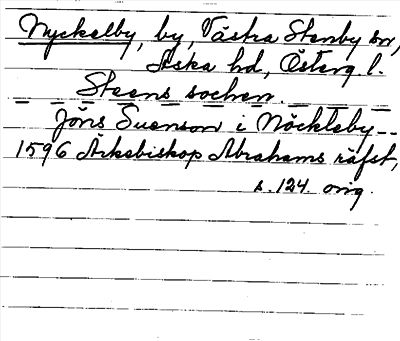 Nyckelby, by, Västra Stenby sn,
Aska hd, Österg. l.
Steens sochen.
Jöns Suenson i Nöckleby --
1596 Ärkebiskop Abrahams räfst,
s. 124. orig.